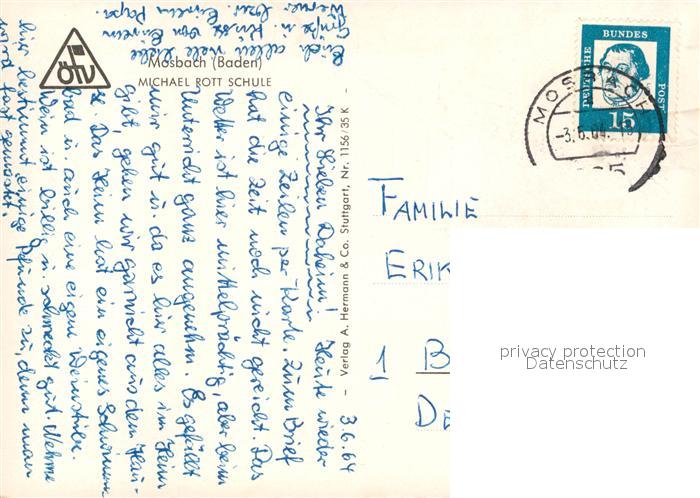 ÖTV
Mosbach (Baden)
MICHAEL ROTT SCHULE
3.6.64
Ihr lieben Daheim! Heute wieder
einige Zeilen per Karte. Zum Brief
hat die Zeit noch nicht gereicht. Das
Wetter ist hier mittelprächtig, aber beim
Unterricht ganz angenehm. Es gefällt
mir gut u. da es hier alles im Heim
gibt, gehen wir garnicht aus dem Häu-
se. Das Heim hat ein eigenes Schwimm-
bad u. auch eine eigene Weinstube.
Wein ist billig u. schmeckt gut. Nehme
hier bestimmt einige Pfunde zu, denn man
wird fast gemästet.
Euch allen viele liebe
Grüße u. Kuss von Eurem
Werner bzw. Eurem Papa
- Verlag A. Hermann & Co. Stuttgart, Nr. 1156/35 K -
DEUTSCHE
BUNDES
POST
15
MOSBACH
-3.6.64
FAMILIE
ERIK
1 B
DE
privacy protection
Datenschutz